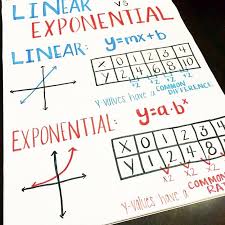 LINEAR VS
EXPONENTIAL
LINEAR: y=mx+b
X 0 1 2 3 4
Y 2 4 6 8 10
+2 +2 +2 +2
y-values have a COMMON
DIFFERENCE
EXPONENTIAL: y=a·bˣ
X 0 1 2 3
Y 1 2 4 8
x2 x2 x2
y-values have a COMMON